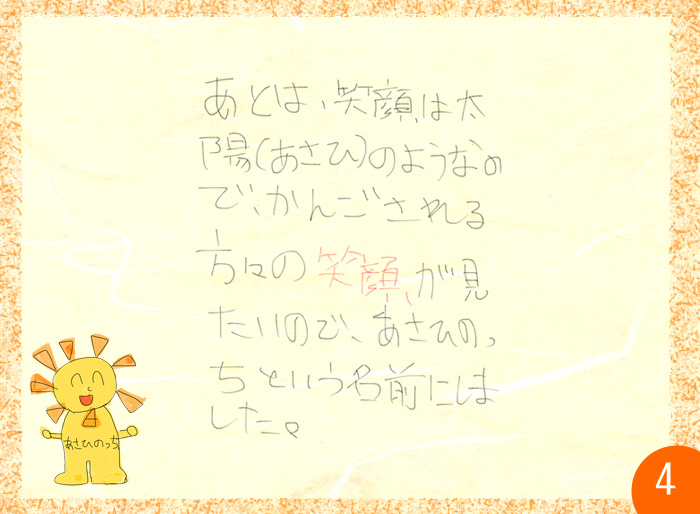 あとは、笑顔は太
陽(あさひ)のようなの
で、かんごされる
方々の笑顔が見
たいので、あさひのっ
ちという名前にしま
した。
あさひのっち
4